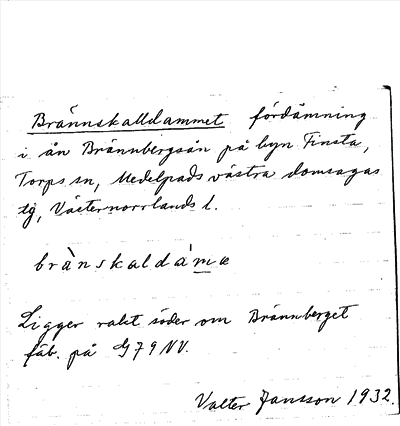 Brännskalldammet fördämning
i ån Brännbergsån på byn Finsta,
Torps sn, Medelpads västra domsagas
tg, Västernorrlands l.
brànskaldàmæ
Ligger rakt söder om Brännberget
fäb. på G79NV.
Valter Jansson 1932.